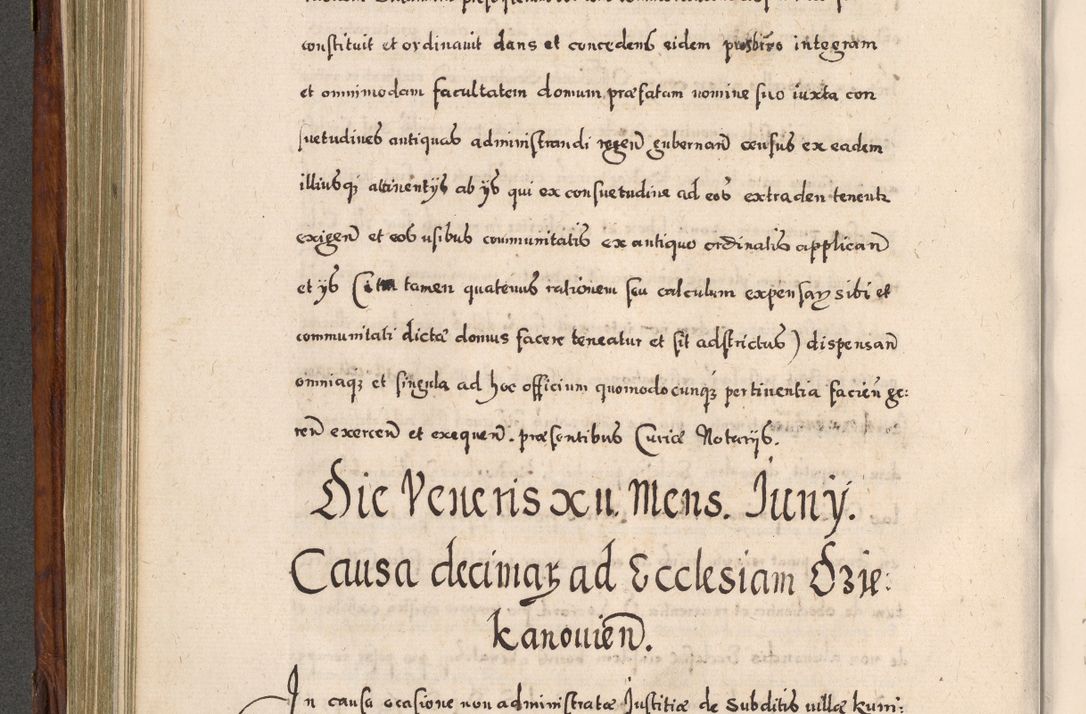 constituit et ordinauit dans et concedens eidem presbitro integram
et omnimodam facultatem domum præfatam nomine suo iuxta con
suetudines antiquas administrandi regen̄ gubernan̄ census ex eadem
illiusq; attinentÿs ab ÿs qui ex consuetudine ad eos extraden tenentr
exigen̄ et eos usibus communitatis ex antiquo ordinatis applican̄
et ÿs (Cum tamen quatenus rationem seu calculum expensaꝝ sibi et
communitati dictæ domus facere teneatur et sit adstrictus) dispensan̄
omniaq; et singula ad hoc officium quomodocunq; pertinentia facien̄ ge:
ren̄ exercen̄ et exequen̄. præsentibus Curiæ Notarÿs.
Die Veneris xii. Mens. Junÿ.
Causa decimaꝝ ad Ecclesiam Dzie:
kanouien̄.
In causa ocasione non administratæ Justitiæ de subditis villæ kuni: